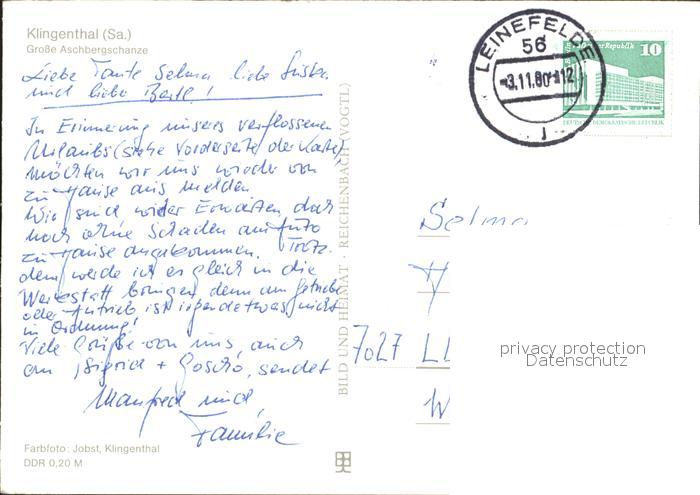 Klingenthal (Sa.)
Große Aschbergschanze
Liebe Tante Selma liebe
und liebe Bertl!
In Erinnerung unseres verflossenen
Urlaubs (siehe Vorderseite der Karte)
möchten wir uns wieder von
zu Hause aus melden.
Wir sind wider Erwarten doch
noch ohne Schaden am Auto
zu Hause angekommen. Trotz-
dem werde ich es gleich in die
Werkstatt bringen, denn am Getriebe
oder Antrieb ist irgendetwas nicht
in Ordnung!
Viele Grüße von uns, auch
an Sigrid + Goscho, sendet
Manfred und
Familie
Farbfoto: Jobst, Klingenthal
DDR 0,20 M
BILD UND HEIMAT · REICHENBACH (VOGTL)
LEINEFELDE
56
-3.11.80-12
10
DEUTSCHE DEMOKRATISCHE REPUBLIK
Selma
7027
W
privacy protection
Datenschutz